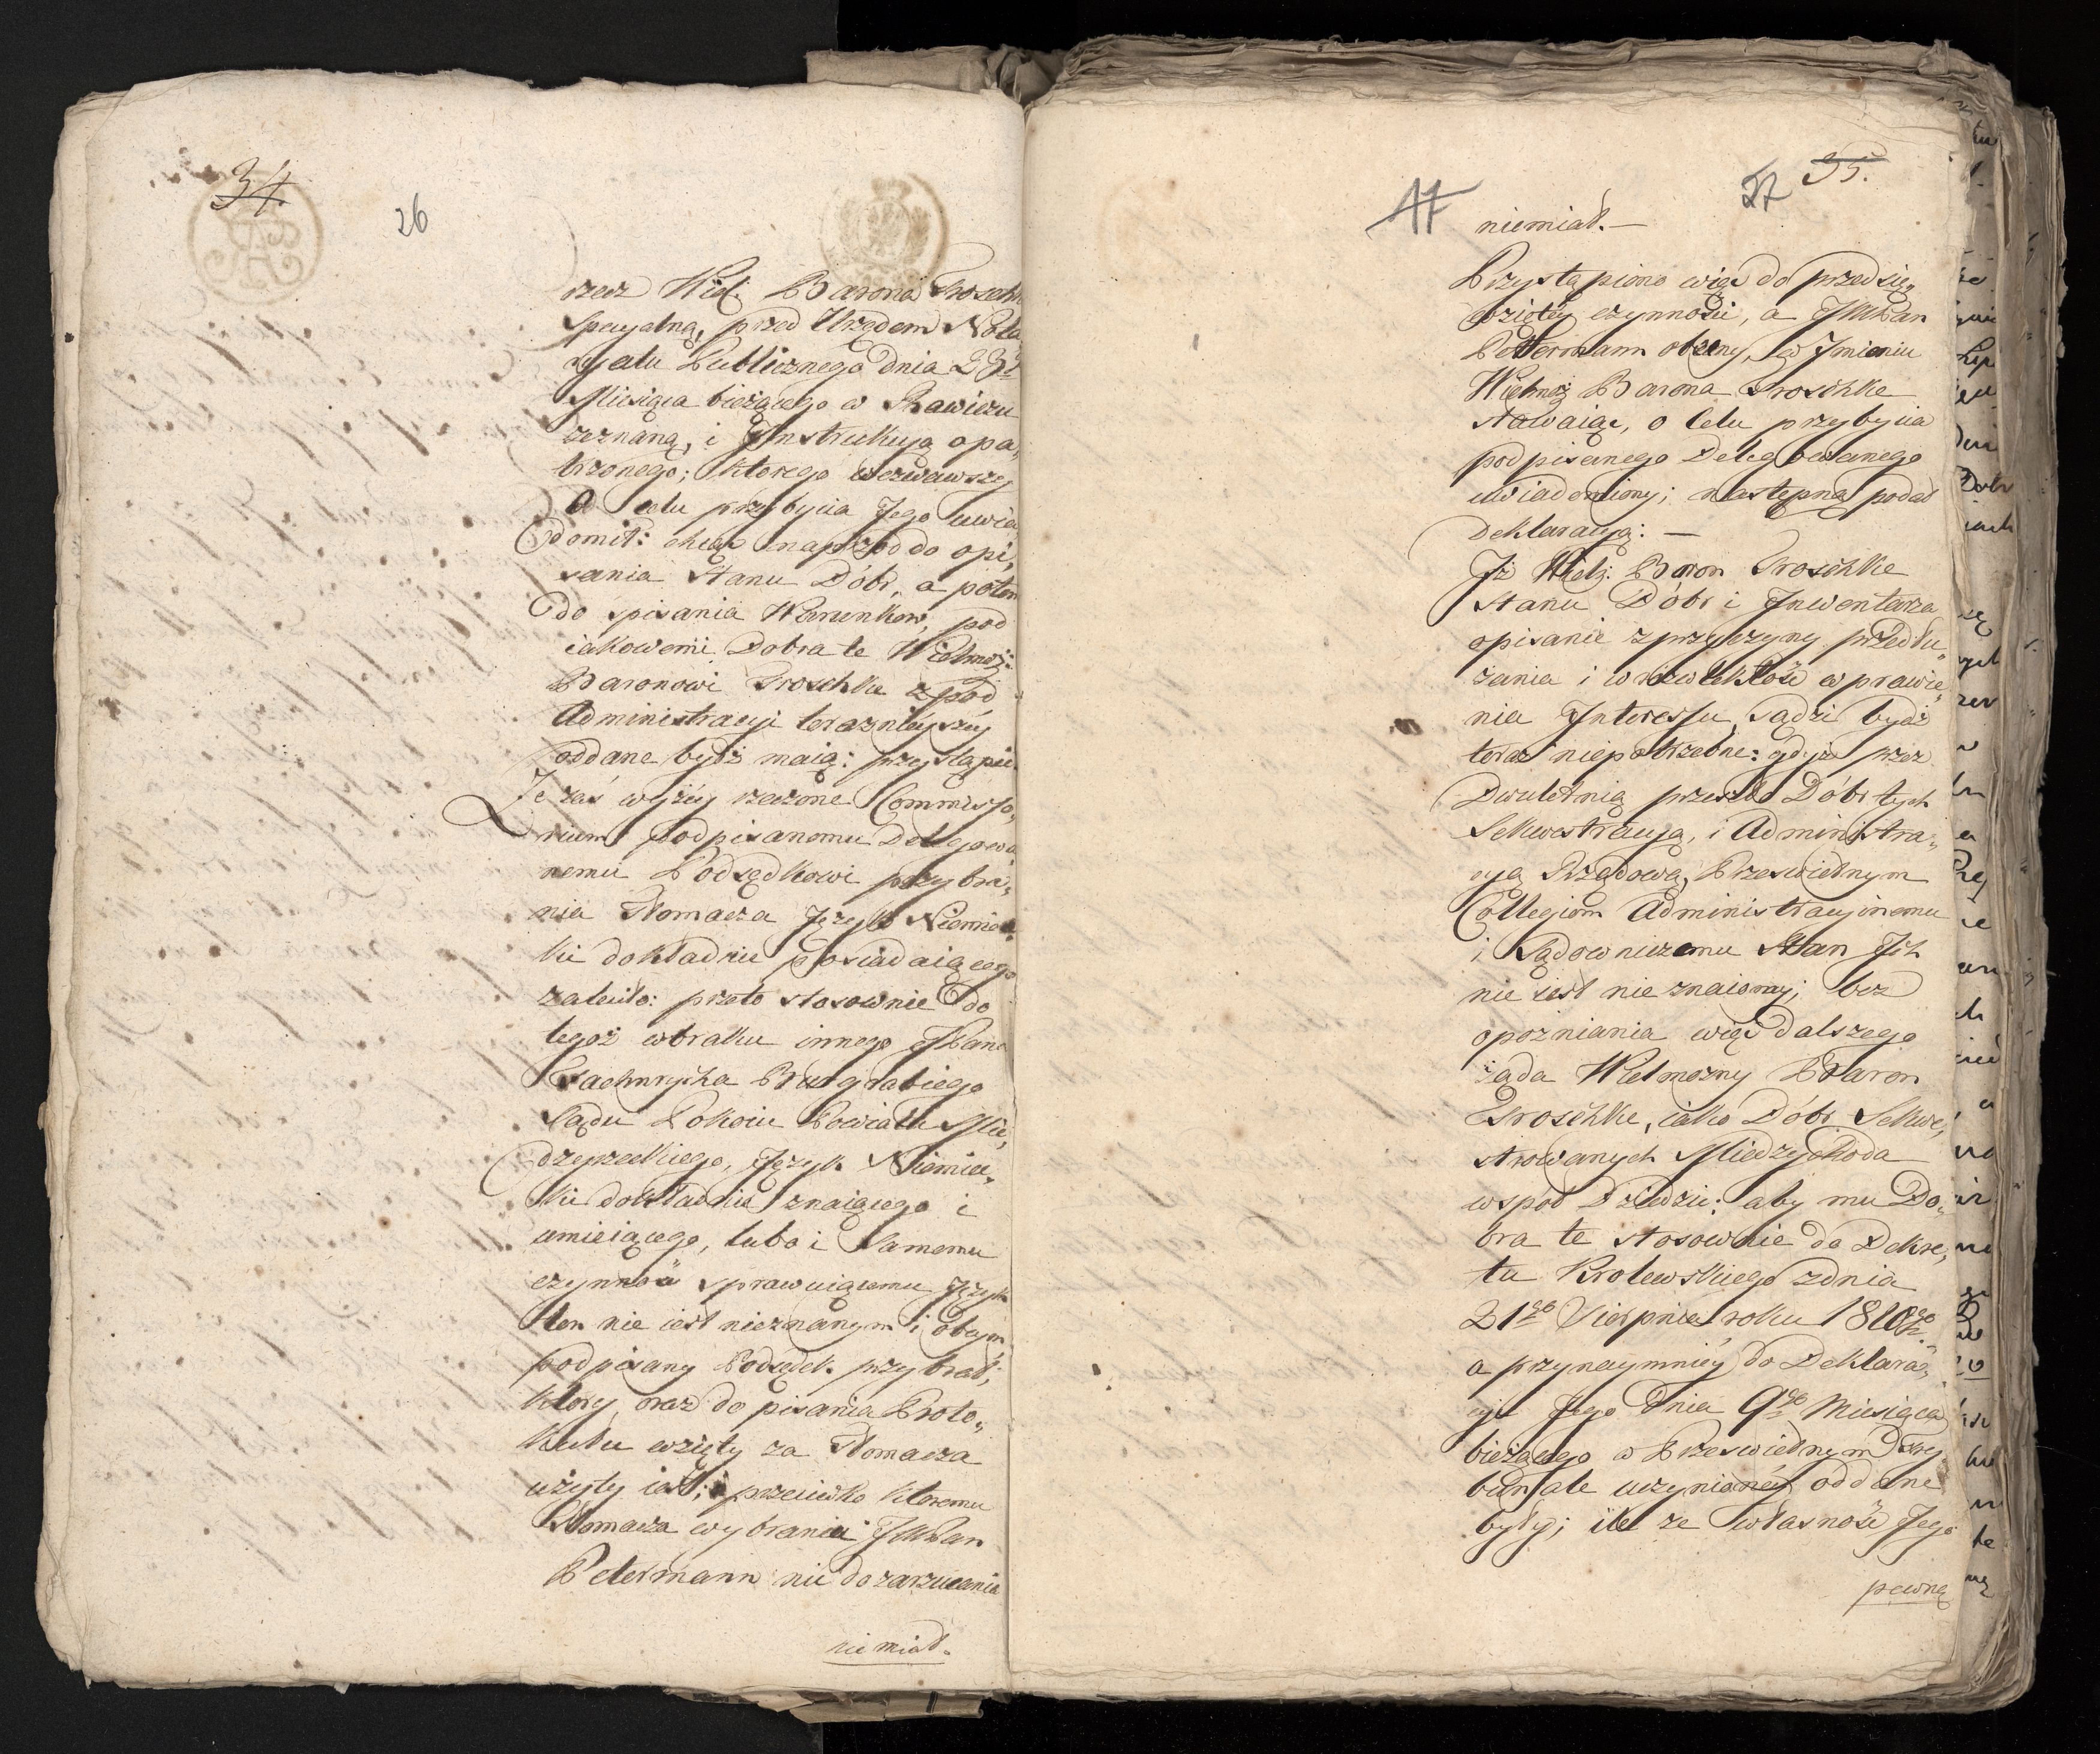 34.
26
rzecz Wiel. Barona Troschke
specyalną, przed Urzędem Nota
ryatu Publicznego dnia 23º
Miesiąca bieżącego w Rawiczu
zeznaną, i Instrukcyą opa„
trzonego; którego wezwawszy
o celu przybycia Jego uwia
domił: chcąc naprzód do opi„
sania Stanu Dóbr, a potem
do spisania Warunków, pod
iakowemi Dobra te Wielmoż:
Baronowi Troschke z pod
Administracyi teraznieyszéy
oddane bydź maią: przystąpić.
Że zaś wyżéy rzeczone Commisso„
rium podpisanemu Delegowa
nemu Podsędkowi przybra„
nia Tłomacza Język Niemiec
ki dokładnie posiadaiącego
zaleciło: przeto stosownie do
tegoż w braku innego JPana
Burgrabiego
Sądu Pokoiu Powiatu Mię„
dzyrzeckiego, Język Niemiec„
ki dokładnie znaiącego i
umieiącego, lubo i Samemu
czynność sprawuiącemu Język
ten nie iest nieznanym i obcym
podpisany Podsędek przybrał;
który oraz do pisania Proto„
kułu wzięty za Tłomacza
użyty iest; przeciwko któremu
Tłomacza wybraniu JMPan
Petermann nic do zarzucenia
niemiał.
35.
27
17
niemiał. —
Przystąpiono więc do przedsię„
wziętéy czynności, a JMPan
Petermann obecny, w Imieniu
Wielmoż Barona Troschke
stawaiąc, o Celu przybycia
podpisanego Delegowanego
uwiadomiony; następną podał
Deklaracyą: —
Iż Wielż: Baron Troschke
Stanu Dóbr i Inwentarza
opisanie z przyczyny przedłu„
żania i w prawie„
nia Interessu, sądzi bydź
teraz niepotrzebne: gdyż przez
Dwuletnią przeszło Dóbr tych
Sekwestracyą, i Administra„
cyą Rządową, Prześwietnym
Collegiom Administracyinemu
i Sądowniczemu Stan Ich
nie iest nieznaiomy; bez
opóźniania więc dalszego
żąda Wielmożny Baron
Troschke, iako Dóbr Sekwe„
strowanych Międzychoda
wspoł Dziedzic: aby mu Do„
bra te stosownie do Dekre„
tu Krolewskiego z dnia
21go Sierpnia roku 1810go
a przynaymniéy do Deklara„
cyi Jego Dnia 9go Miesiąca
bieżącego w Prześwietnym Try„
bunale uczynionéy oddane
były; ile że własność Jego
pewną